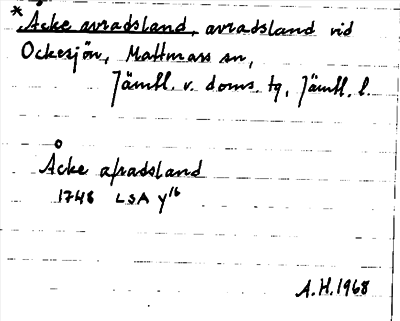 * Åcke avradsland, avradsland vid
Ockesjön, Mattmars sn,
Jämtl. v. doms. tg, Jämtl. l.
Åcke afradsland
1748 LSA y16
A.H. 1968